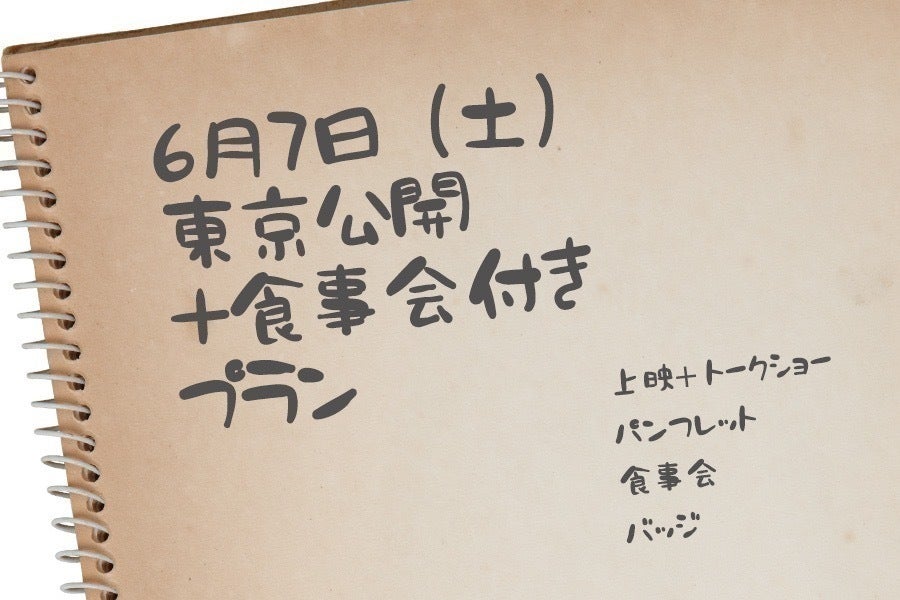 6月7日（土）
東京公開
+食事会付き
プラン
上映+トークショー
パンフレット
食事会
バッジ